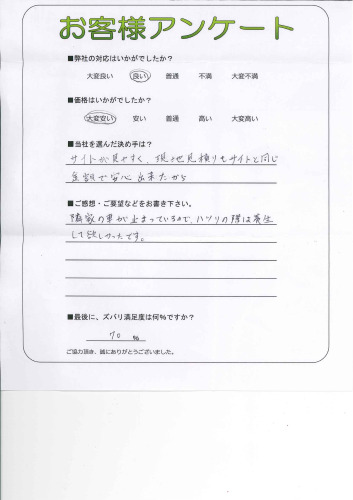 お客様アンケート
■弊社の対応はいかがでしたか?
大変良い 良い 普通 不満 大変不満
■価格はいかがでしたか?
大変安い 安い 普通 高い 大変高い
■当社を選んだ決め手は?
サイトが見やすく、現地見積りもサイトと同じ
金額で安心出来たから
■ご感想・ご要望などをお書き下さい。
隣家の車が止まっているので、ハツリの際は養生
して欲しかったです。
■最後に、ズバリ満足度は何%ですか?
70 %
ご協力頂き、誠にありがとうございました。